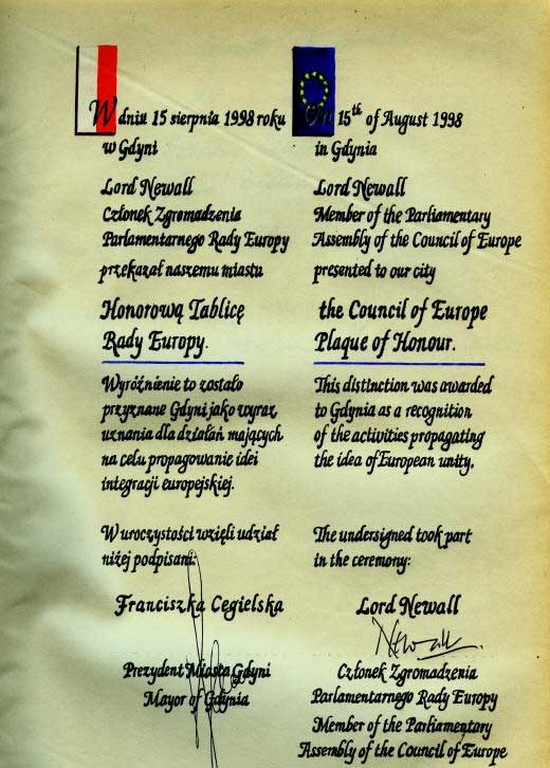 W dniu 15 sierpnia 1998 roku
w Gdyni
Lord Newall
Członek Zgromadzenia
Parlamentarnego Rady Europy
przekazał naszemu miastu
Honorową Tablicę
Rady Europy.
Wyróżnienie to zostało
przyznane Gdyni jako wyraz
uznania dla działań mających
na celu propagowanie idei
integracji europejskiej.
W uroczystości wzięli udział
niżej podpisani:
Franciszka Cegielska
Prezydent Miasta Gdyni
Mayor of Gdynia
On 15th of August 1998
in Gdynia
Lord Newall
Member of the Parliamentary
Assembly of the Council of Europe
presented to our city
the Council of Europe
Plaque of Honour.
This distinction was awarded
to Gdynia as a recognition
of the activities propagating
the idea of European unity.
The undersigned took part
in the ceremony:
Lord Newall
Newall.
Członek Zgromadzenia
Parlamentarnego Rady Europy
Member of the Parliamentary
Assembly of the Council of Europe